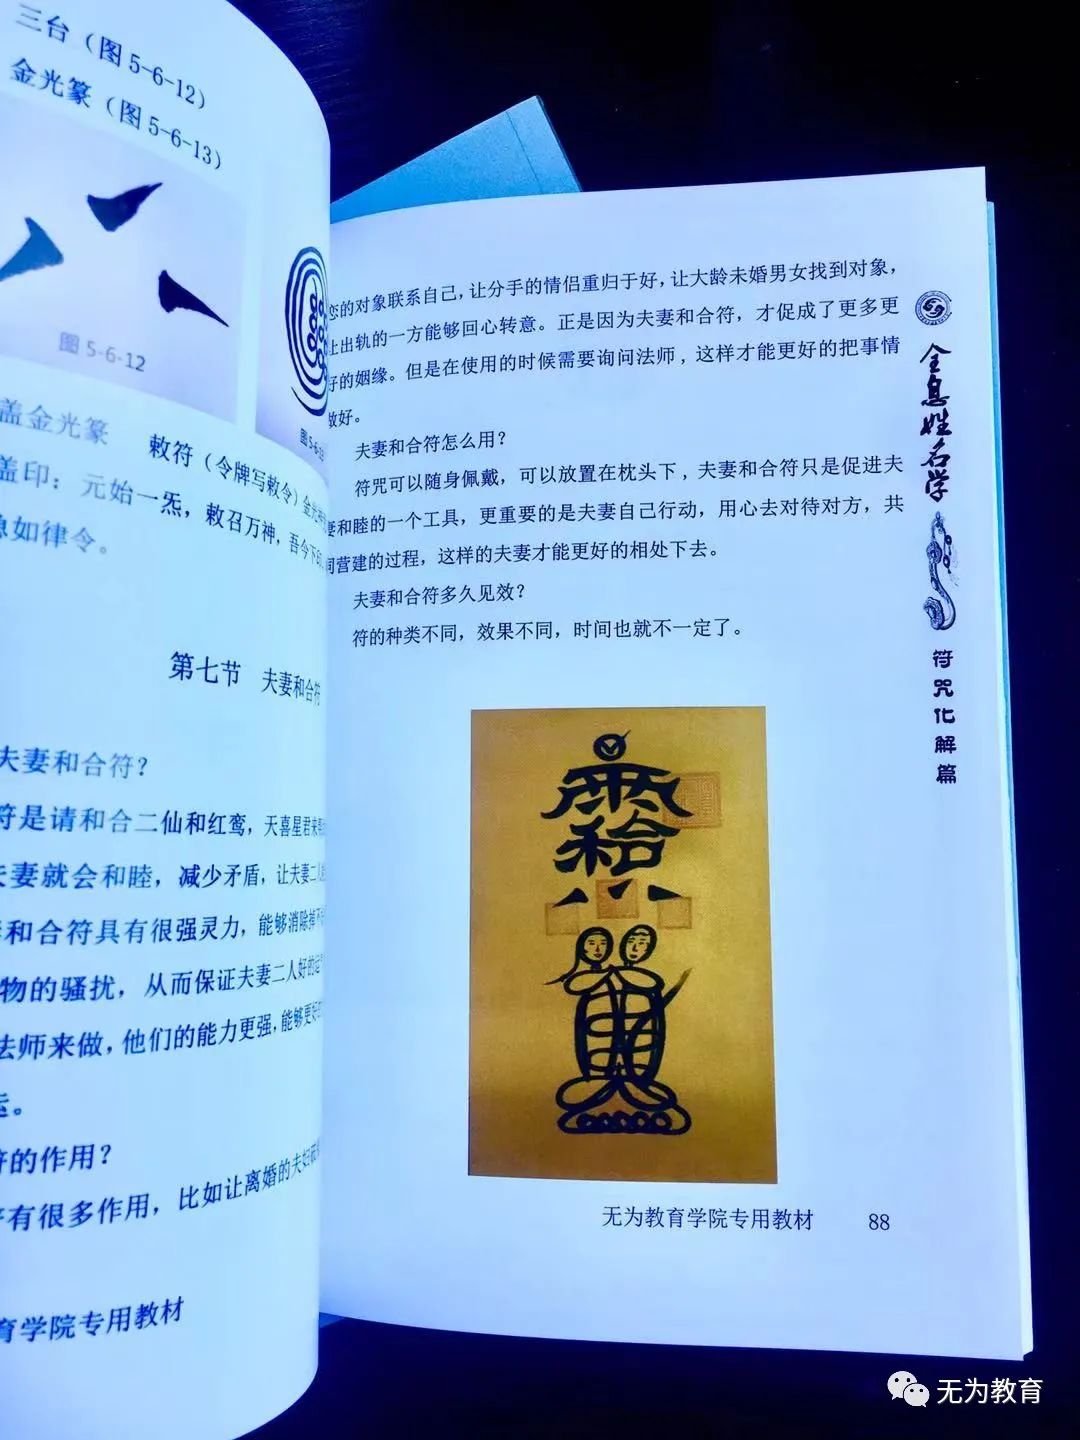 三台（图5-6-12）
金光篆（图5-6-13）
图5-6-12
图5-6-13
盖金光篆 敕符（令牌写敕令）金光
盖印：元始一炁，敕召万神，吾今下
急如律令。
第七节 夫妻和合符
夫妻和合符？
符是请和合二仙和红鸾，天喜星君来
夫妻就会和睦，减少矛盾，让夫妻二人
和合符具有很强灵力，能够消除掉
物的骚扰，从而保证夫妻二人好的运
法师来做，他们的能力更强，能够更好
运。
符的作用？
有很多作用，比如让离婚的夫妇
育学院专用教材
恋的对象联系自己，让分手的情侣重归于好，让大龄未婚男女找到对象，
让出轨的一方能够回心转意。正是因为夫妻和合符，才促成了更多更
好的姻缘。但是在使用的时候需要询问法师，这样才能更好的把事情
做好。
夫妻和合符怎么用？
符咒可以随身佩戴，可以放置在枕头下，夫妻和合符只是促进夫
妻和睦的一个工具，更重要的是夫妻自己行动，用心去对待对方，共
同营建的过程，这样的夫妻才能更好的相处下去。
夫妻和合符多久见效？
符的种类不同，效果不同，时间也就不一定了。
无为教育学院专用教材 88
全息姓名学
符咒化解篇
无为教育